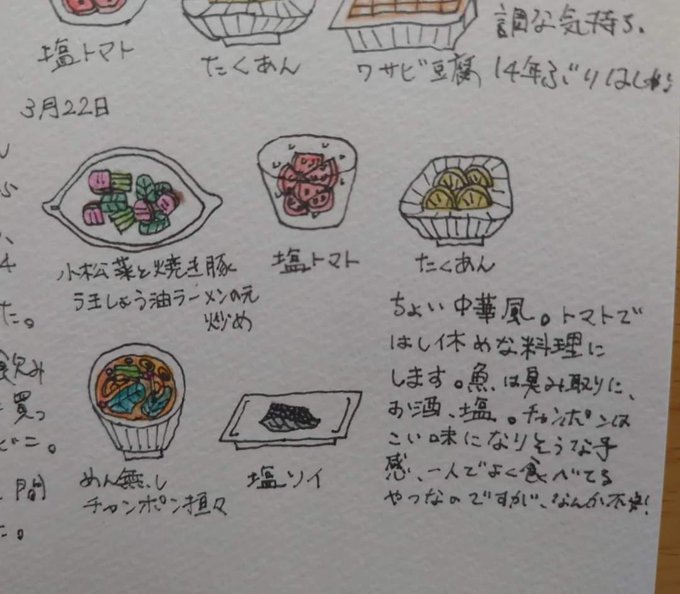 塩トマト
たくあん
ワサビ豆腐
調な気持ち、
14年ぶり
3月22日
小松菜と焼き豚
ラ王しょう油ラーメンの元
炒め
塩トマト
たくあん
めん無し
チャンポン担々
塩ソイ
ちょい中華風。トマトで
はし休めな料理に
します。魚は臭み取りに、
お酒、塩。チャンポンは
こい味になりそうな予
感、一人でよく食べてる
やつなのですが、なんか不安!
た。
飲み
買っ
ビニ。
間
た。